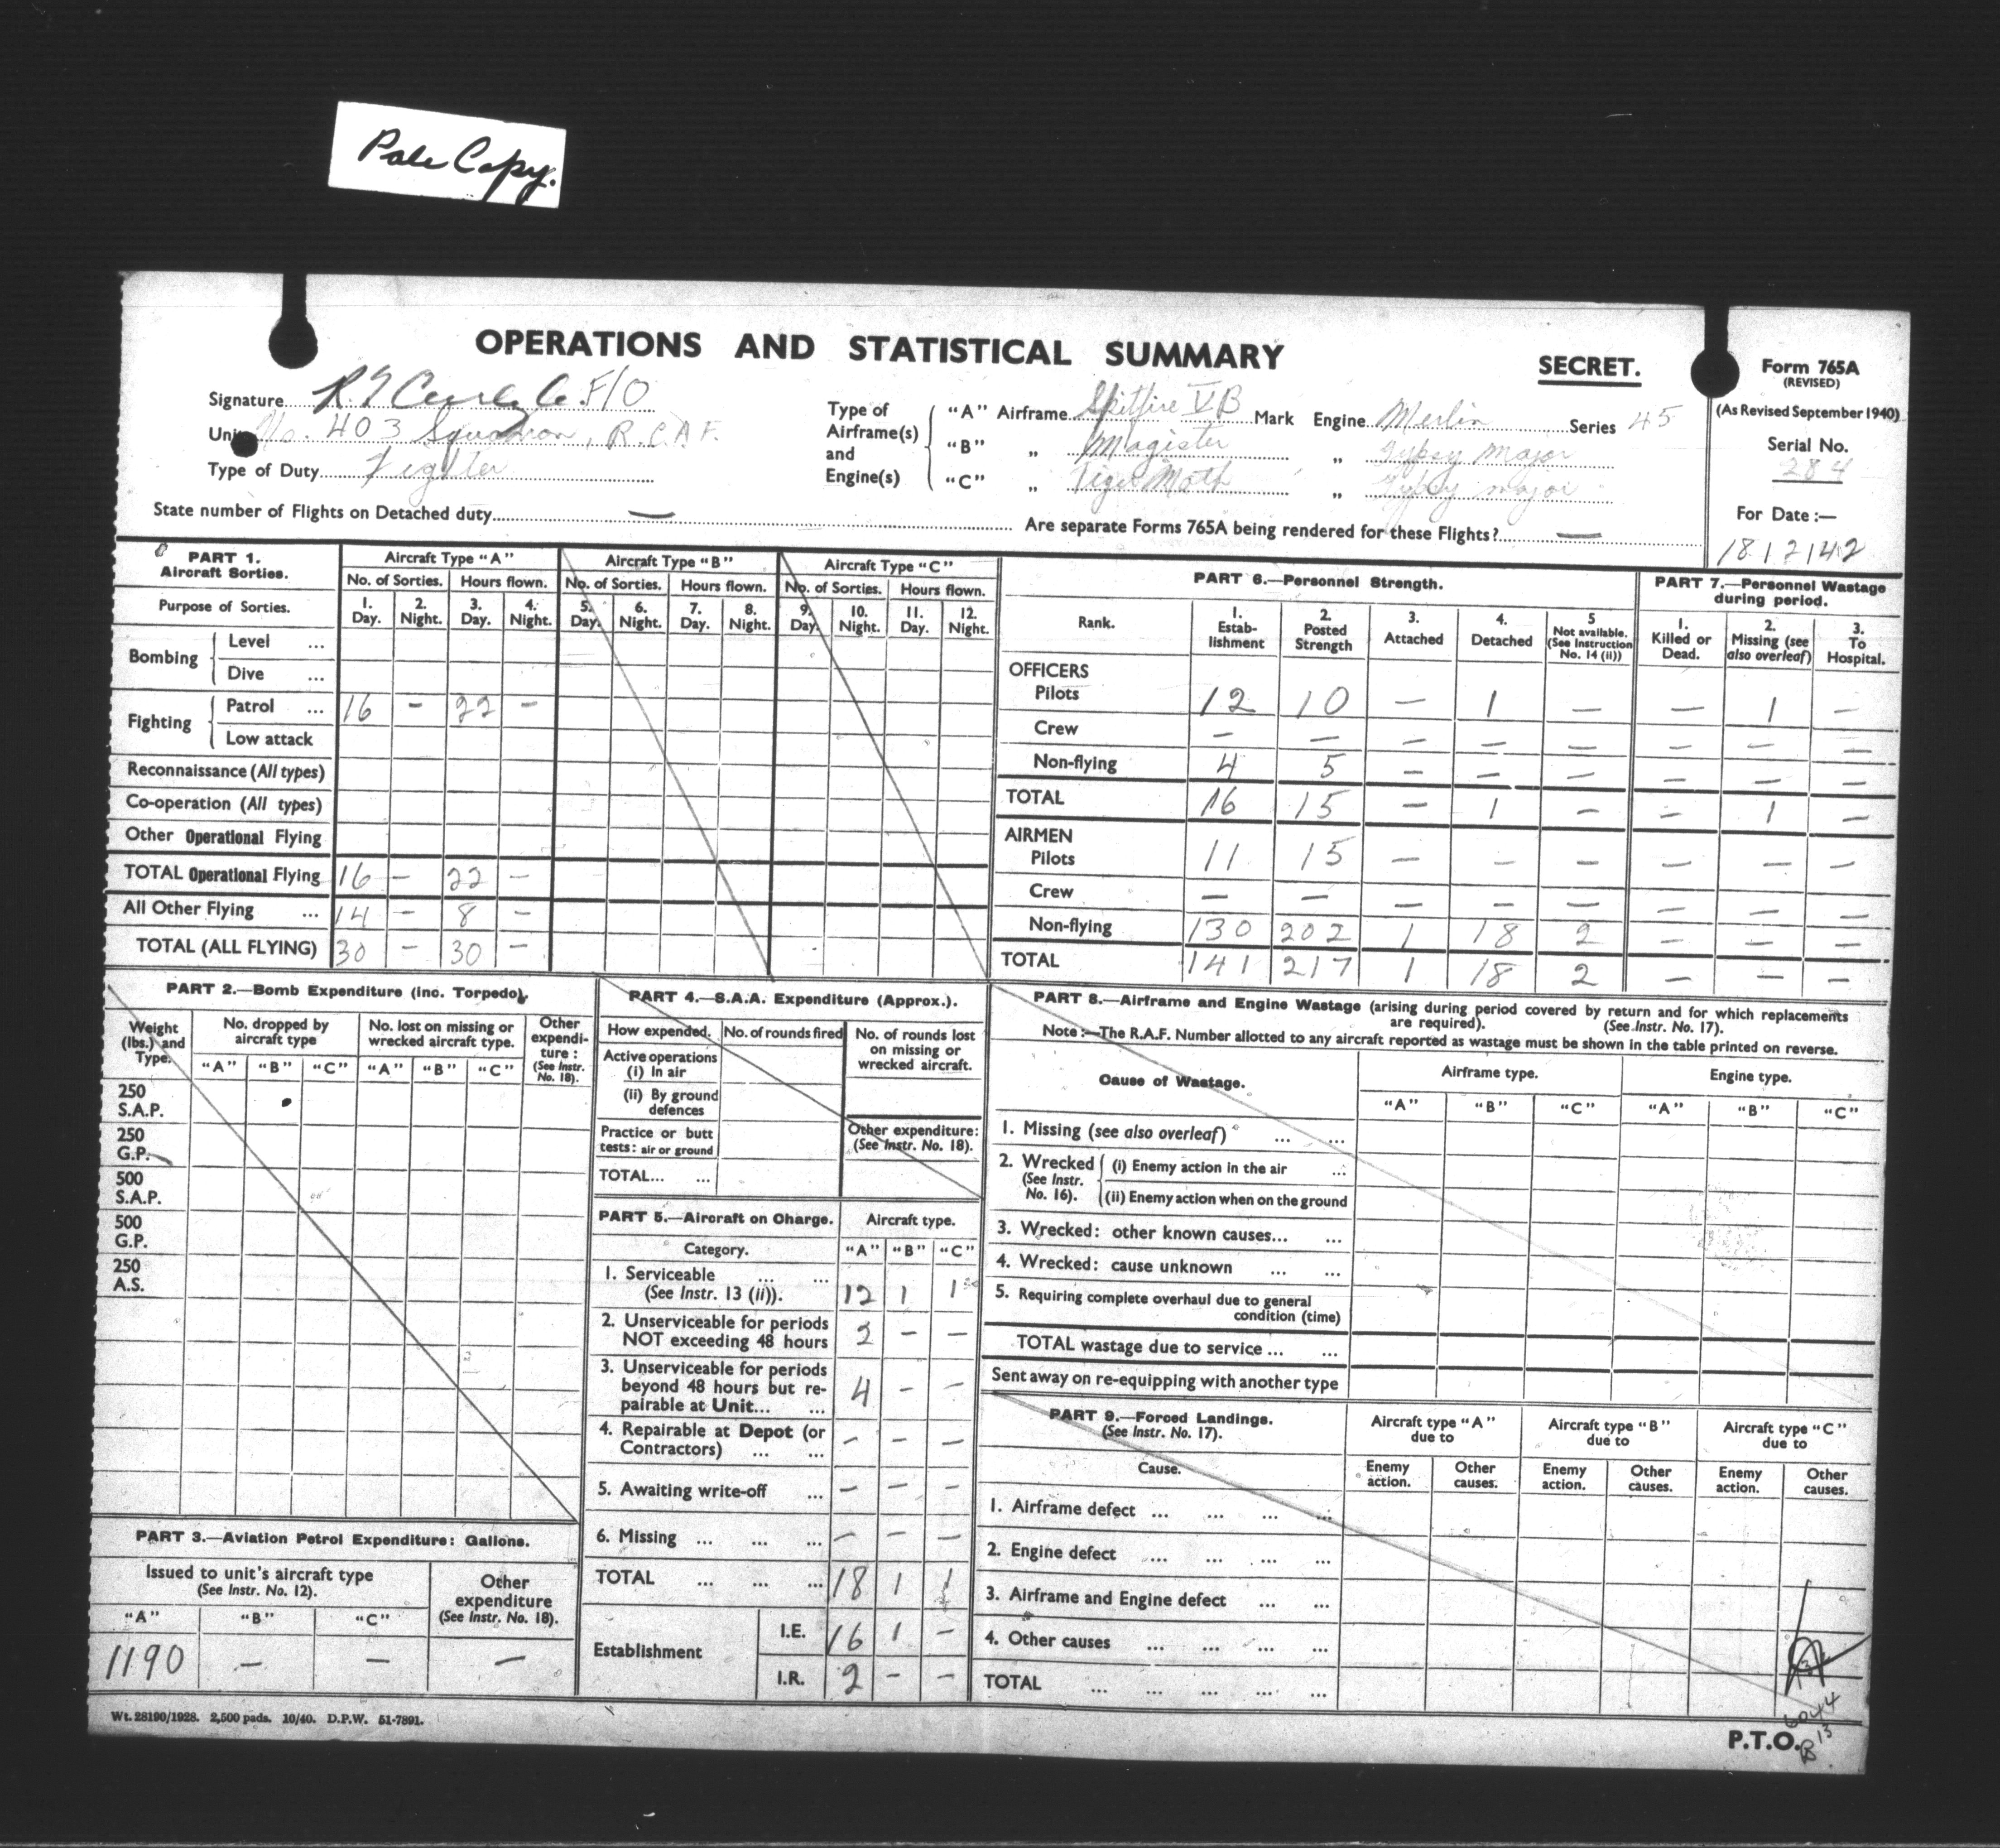 Pale Copy.
OPERATIONS AND STATISTICAL SUMMARY
SECRET.
Form 765A
(REVISED)
(As Revised September 1940)
Serial No.
284
For Date :—
18/2/42
Signature F/O
Unit No. 403 Squadron, R.C.A.F.
Type of Duty Fighter
Type of Airframe(s) and Engine(s)
"A" Airframe Spitfire VB Mark Engine Merlin Series 45
"B" „ Magister „ Gypsy Major
"C" „ Tiger Moth „ Gypsy Major
State number of Flights on Detached duty — Are separate Forms 765A being rendered for these Flights? —
PART 1.
Aircraft Sorties.
Aircraft Type "A" Aircraft Type "B" Aircraft Type "C"
No. of Sorties. Hours flown. No. of Sorties. Hours flown. No. of Sorties. Hours flown.
Purpose of Sorties.
1. Day. 2. Night. 3. Day. 4. Night. 5. Day. 6. Night. 7. Day. 8. Night. 9. Day. 10. Night. 11. Day. 12. Night.
Bombing
Level ...
Dive ...
Fighting
Patrol ... 16 - 22 -
Low attack
Reconnaissance (All types)
Co-operation (All types)
Other Operational Flying
TOTAL Operational Flying 16 - 22 -
All Other Flying ... 14 - 8 -
TOTAL (ALL FLYING) 30 - 30 -
PART 6.—Personnel Strength.
Rank.
1. Establishment
2. Posted Strength
3. Attached
4. Detached
5 Not available. (See Instruction No. 14 (ii))
PART 7.—Personnel Wastage during period.
1. Killed or Dead.
2. Missing (see also overleaf)
3. To Hospital.
OFFICERS
Pilots 12 10 — 1 — — 1 —
Crew — — — — — — — —
Non-flying 4 5 — — — — — —
TOTAL 16 15 — 1 — — 1 —
AIRMEN
Pilots 11 15 — — — — — —
Crew — — — — — — — —
Non-flying 130 202 1 18 2 — — —
TOTAL 141 217 1 18 2 — — —
PART 2.—Bomb Expenditure (inc. Torpedo).
Weight (lbs.) and Type.
No. dropped by aircraft type
No. lost on missing or wrecked aircraft type.
Other expenditure : (See Instr. No. 18).
"A" "B" "C" "A" "B" "C"
250 S.A.P.
250 G.P.
500 S.A.P.
500 G.P.
250 A.S.
PART 3.—Aviation Petrol Expenditure: Gallons.
Issued to unit's aircraft type
(See Instr. No. 12).
Other expenditure
(See Instr. No. 18).
"A" "B" "C"
1190 — — —
PART 4.—S.A.A. Expenditure (Approx.).
How expended. No. of rounds fired No. of rounds lost on missing or wrecked aircraft.
Active operations
(i) In air
(ii) By ground defences
Practice or butt tests: air or ground
Other expenditure: (See Instr. No. 18).
TOTAL... ...
PART 5.—Aircraft on Charge. Aircraft type.
Category. "A" "B" "C"
1. Serviceable ... ...
(See Instr. 13 (ii)). 12 1 1
2. Unserviceable for periods
NOT exceeding 48 hours 2 — —
3. Unserviceable for periods
beyond 48 hours but re-
pairable at Unit... ... 4 - -
4. Repairable at Depot (or
Contractors) ... ... — — —
5. Awaiting write-off ... — — —
6. Missing ... ... ... — — —
TOTAL ... ... ... 18 1 1
Establishment
I.E. 16 1 -
I.R. 2 - -
PART 8.—Airframe and Engine Wastage (arising during period covered by return and for which replacements
are required). (See Instr. No. 17).
Note :—The R.A.F. Number allotted to any aircraft reported as wastage must be shown in the table printed on reverse.
Cause of Wastage. Airframe type. Engine type.
"A" "B" "C" "A" "B" "C"
1. Missing (see also overleaf) ... ...
2. Wrecked (See Instr. No. 16).
(i) Enemy action in the air ...
(ii) Enemy action when on the ground
3. Wrecked: other known causes... ...
4. Wrecked: cause unknown ... ...
5. Requiring complete overhaul due to general
condition (time)
TOTAL wastage due to service ... ...
Sent away on re-equipping with another type
PART 9.—Forced Landings.
(See Instr. No. 17).
Aircraft type "A" due to Aircraft type "B" due to Aircraft type "C" due to
Cause.
Enemy action. Other causes. Enemy action. Other causes. Enemy action. Other causes.
1. Airframe defect ... ... ... ...
2. Engine defect ... ... ... ...
3. Airframe and Engine defect ... ...
4. Other causes ... ... ... ...
TOTAL ... ... ... ... ...
Wt. 28190/1928. 2,500 pads. 10/40. D.P.W. 51-7891.
P.T.O.